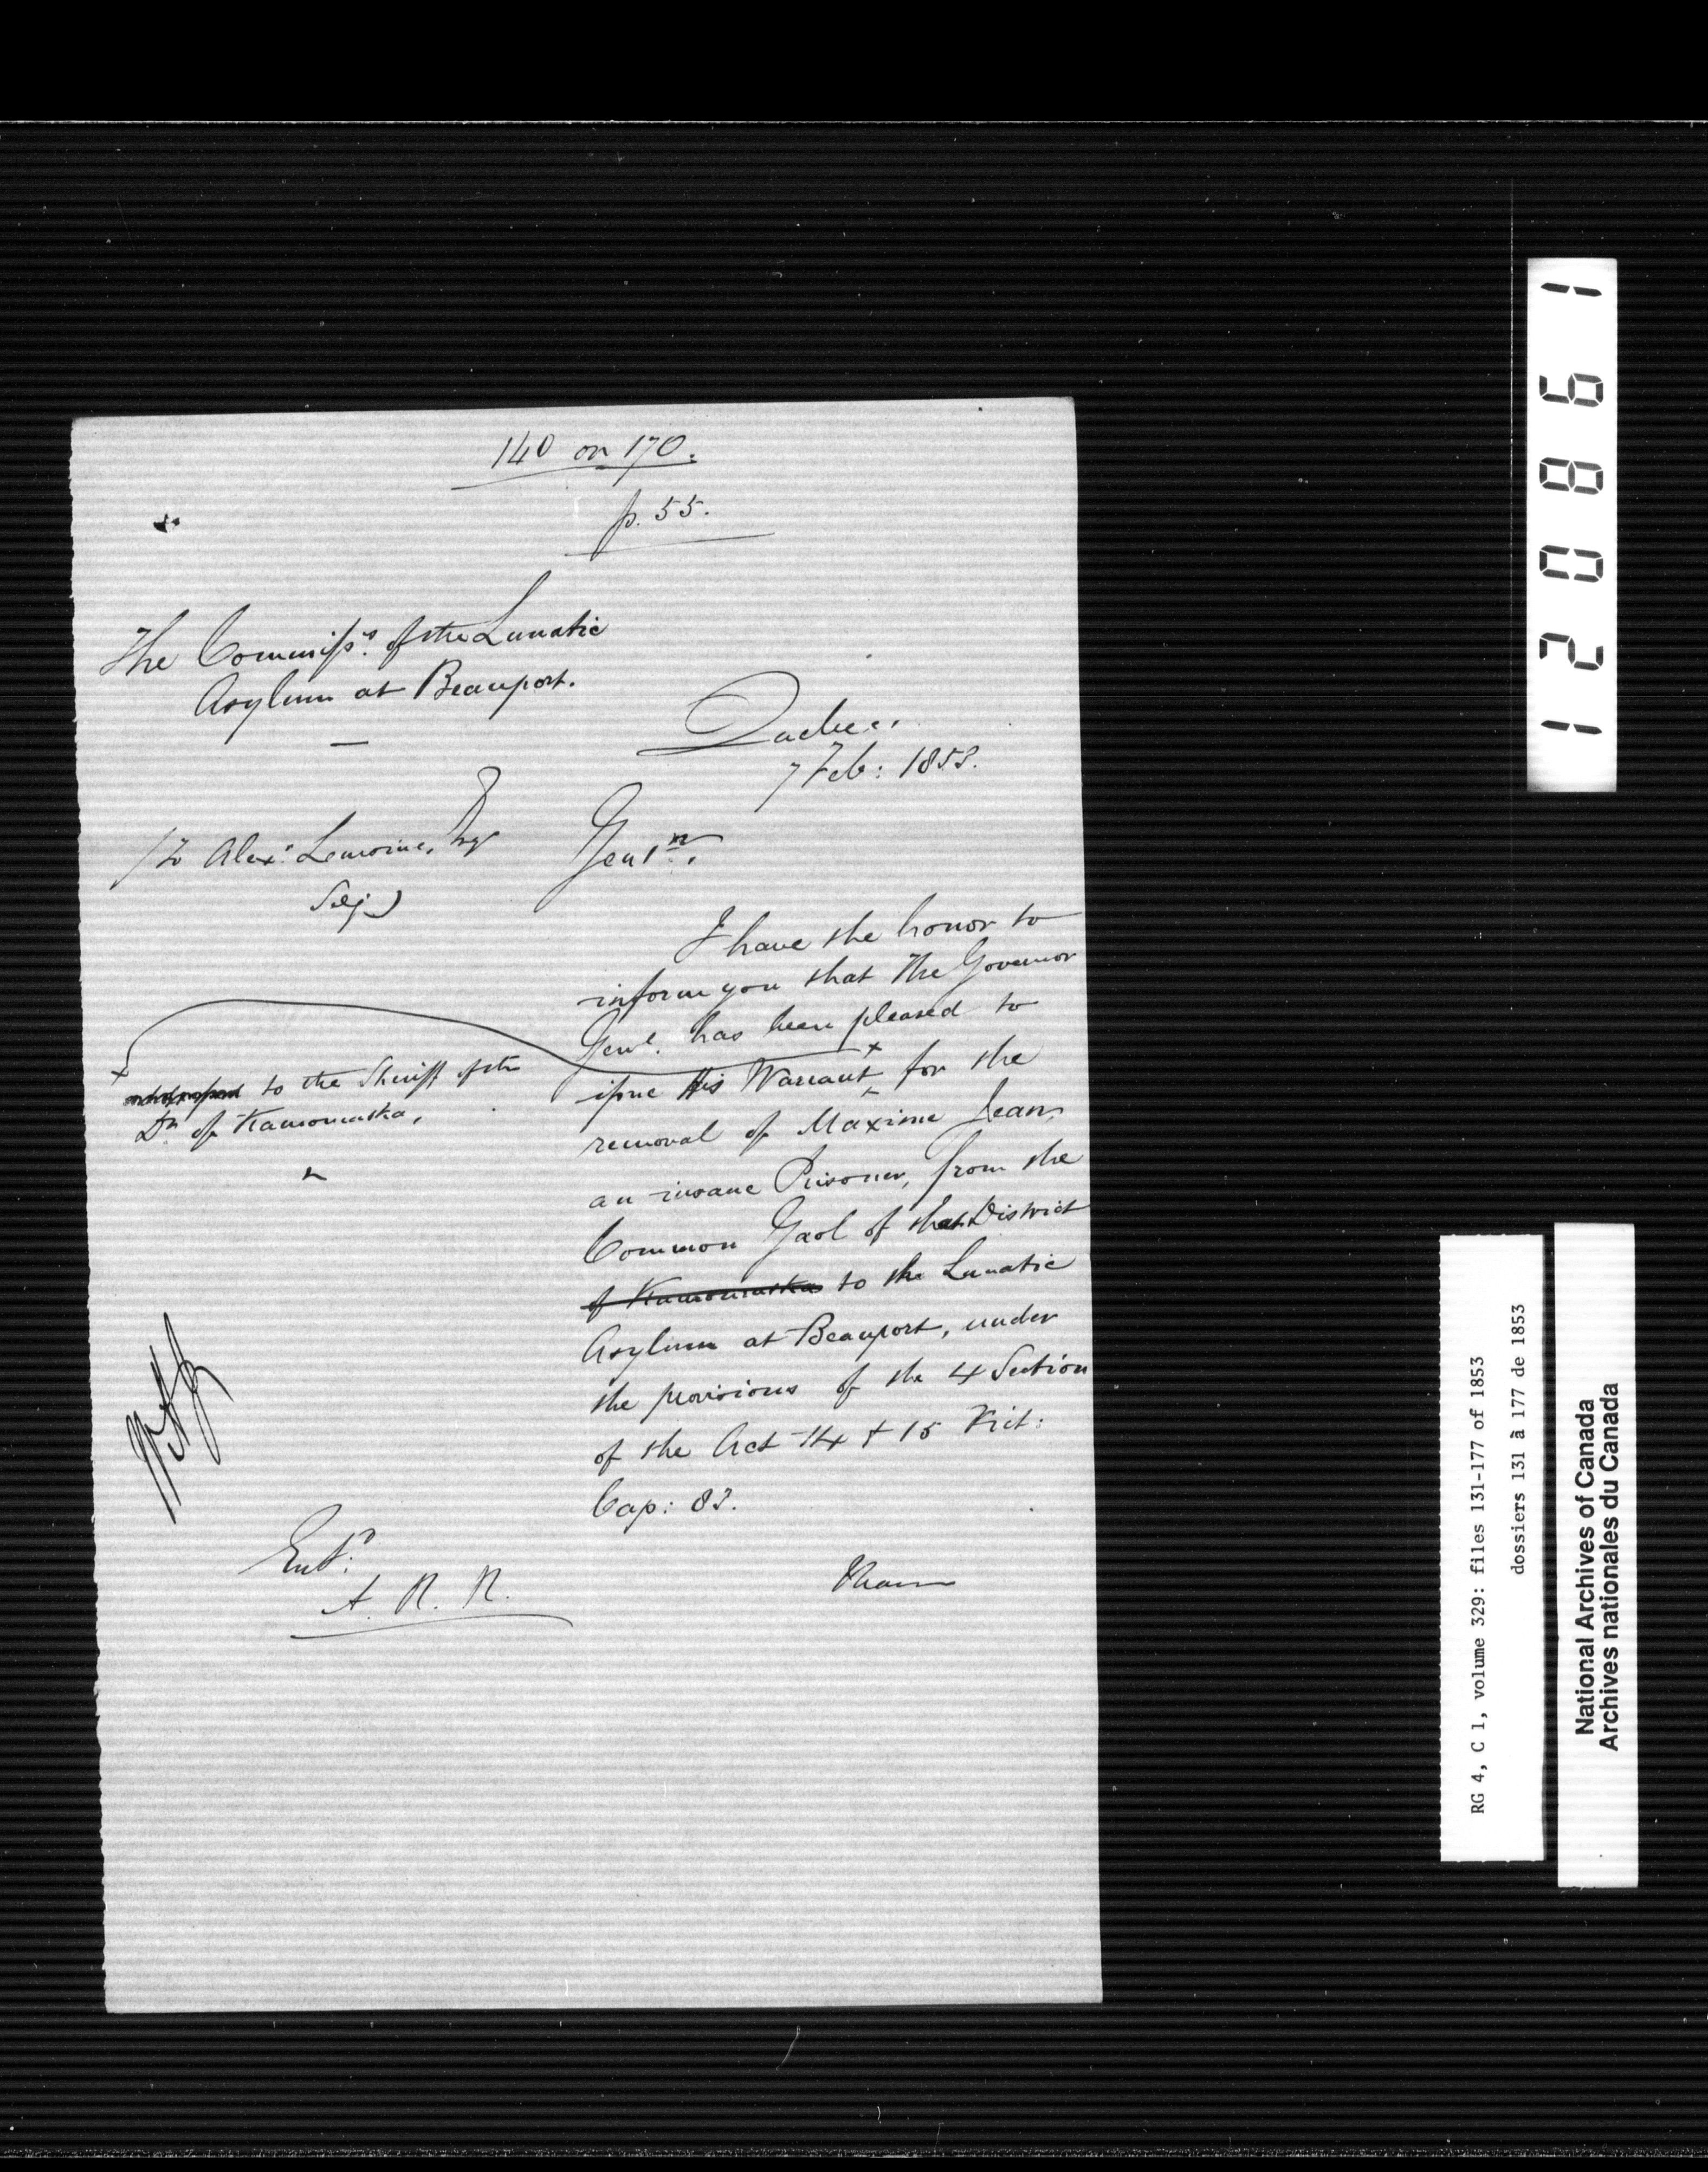 140 on 170.
p. 55.
The Commissrs. of the Lunatic
Asylum at Beauport.
Quebec.
7 Feb: 1853.
/to Alexr. Lemoine, Esqr
Secy)
Gentn.
I have the honor to
inform you that The Governor
Genl. has been pleased to
issue His Warrant x for the
removal of Maxime Jean,
an insane Prisoner, from the
Common Gaol of that District
of Kamouraska to the Lunatic
Asylum at Beauport, under
the provisions of the 4 Section
of the Act 14 & 15 Vict:
Cap: 83.
x to the Sheriff of the
Dt. of Kamouraska,
Entd.
A. R. R.
120861
RG 4, C 1, volume 329: files 131-177 of 1853
dossiers 131 à 177 de 1853
National Archives of Canada
Archives nationales du Canada